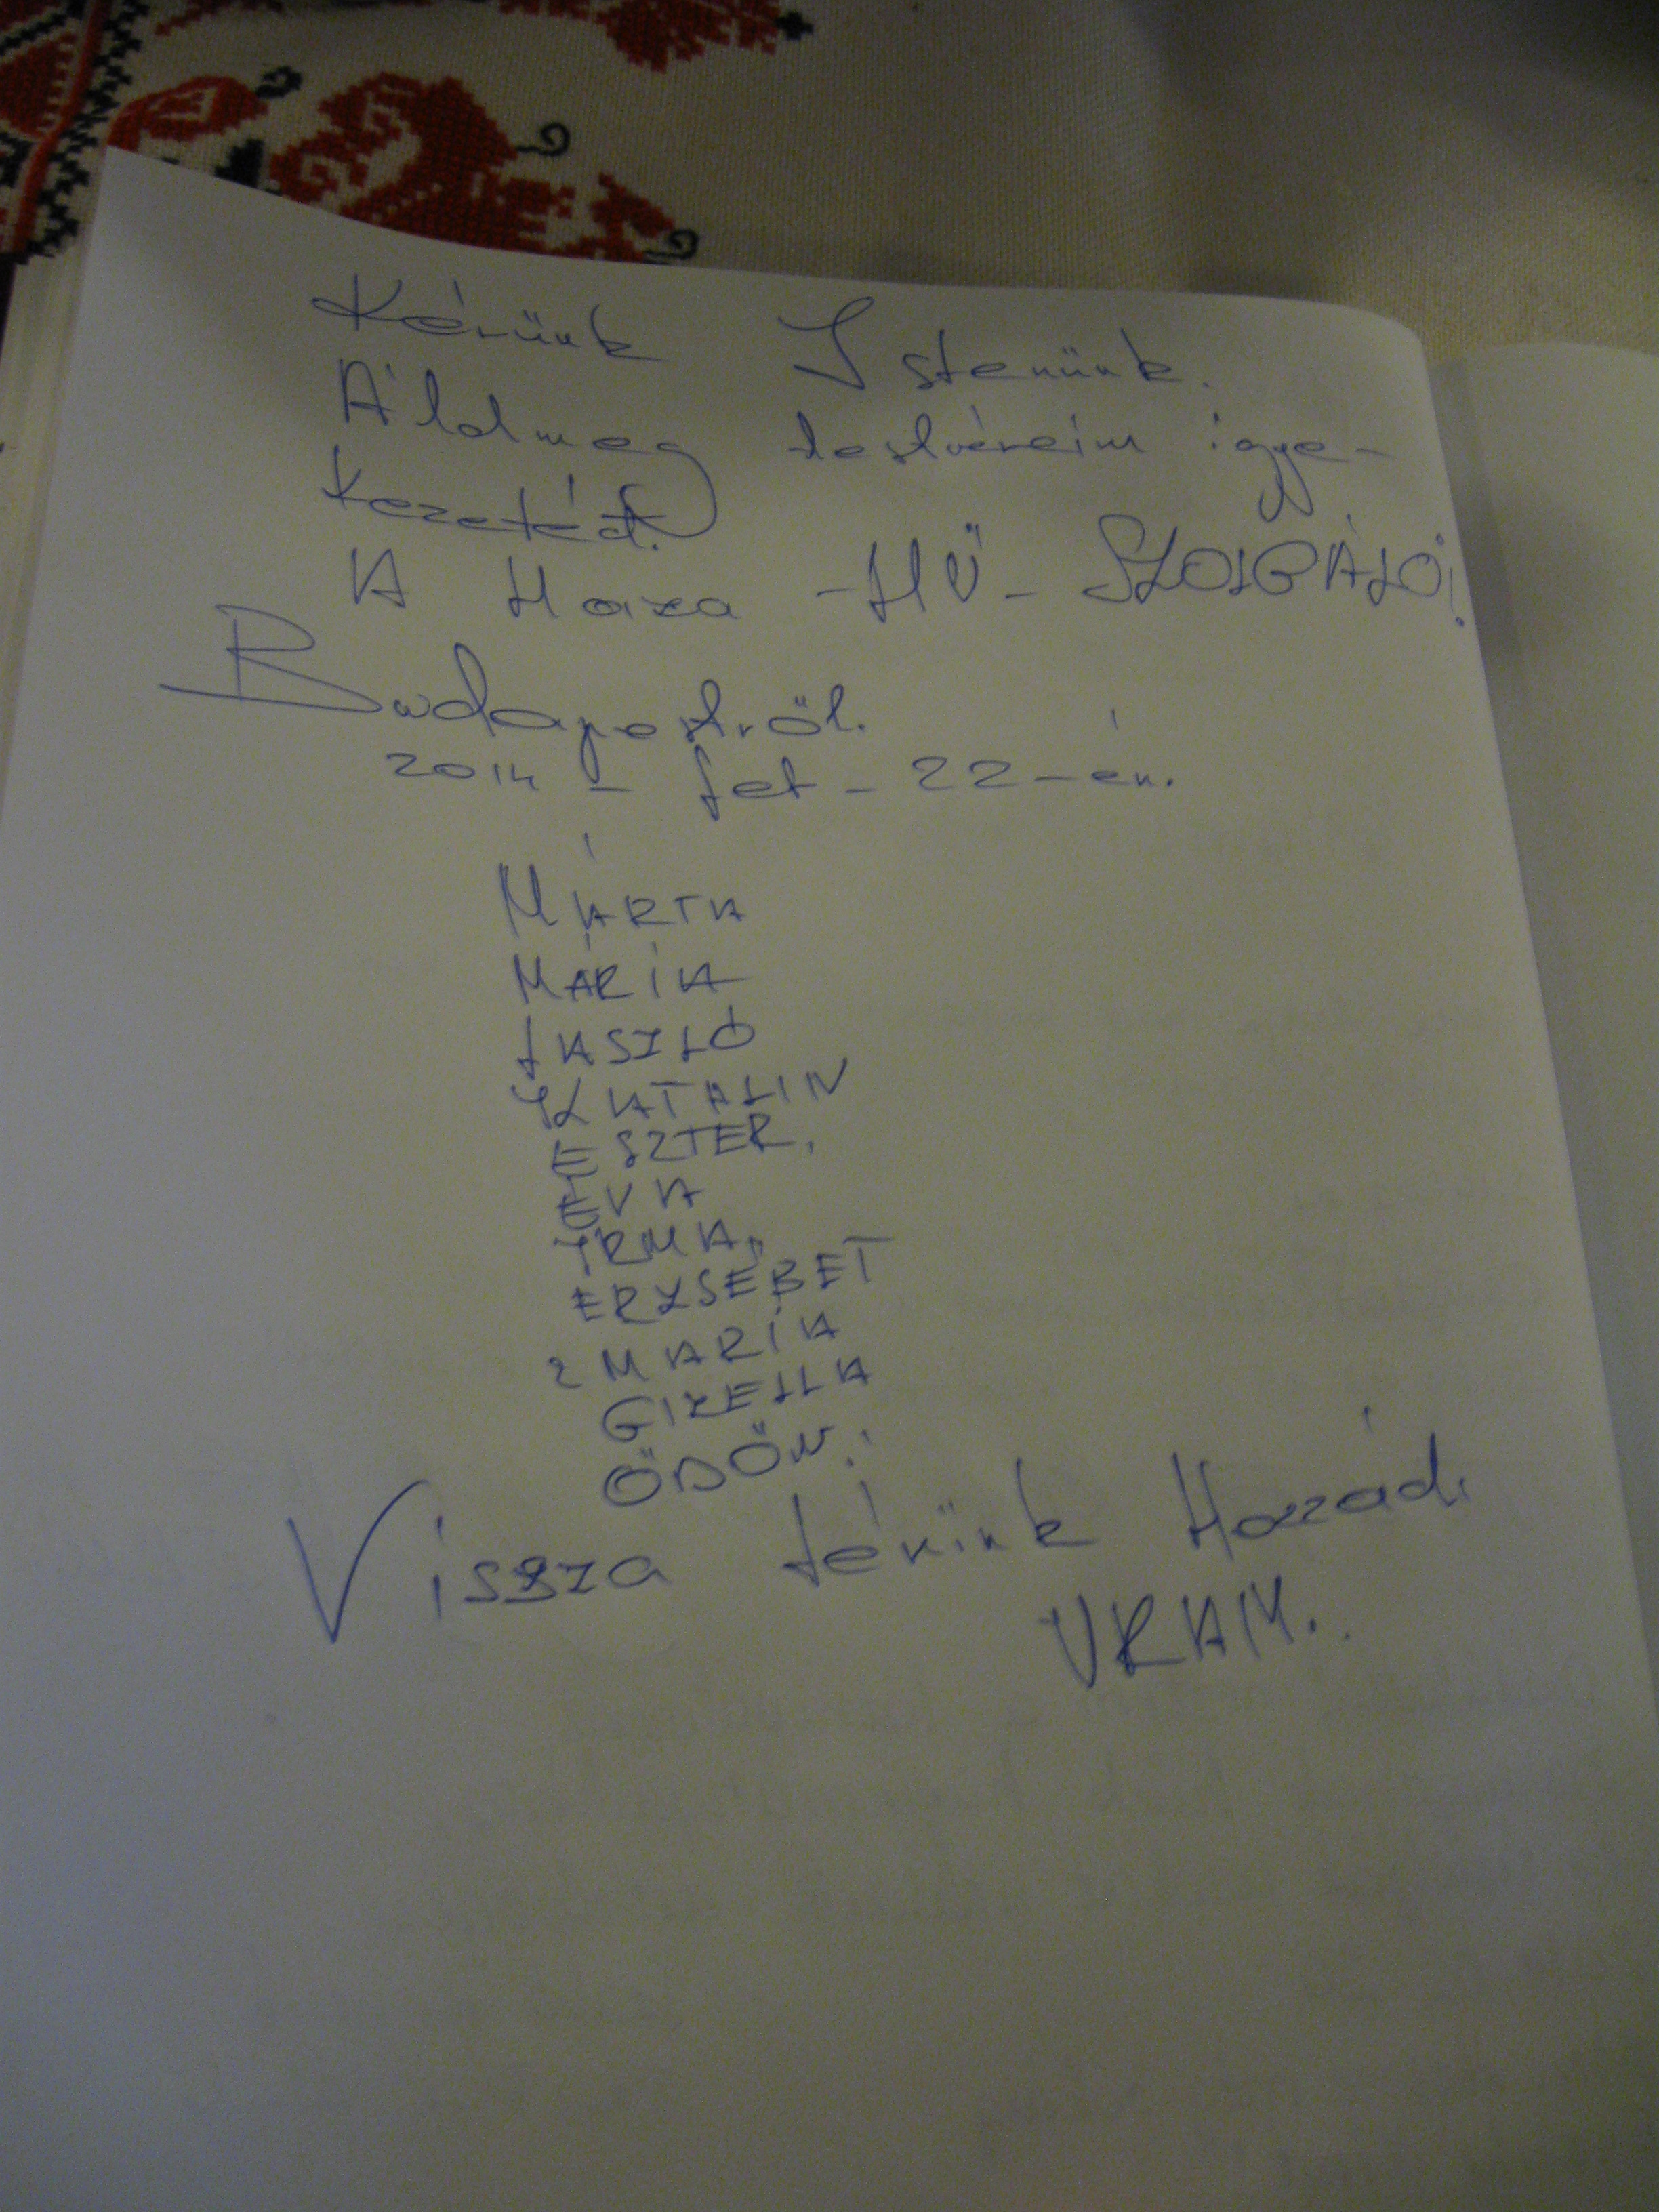 Kérünk Istenünk.
Áldmeg testvéreim igye-
kezetét.
A Haza - HŰ - SZOLGÁLÓI
Budapestről.
2014 - feb - 22-én.
MÁRTA
MÁRIA
LÁSZLÓ
KATALIN
ESZTER,
ÉVA
IRMA,
ERZSÉBET
2 MÁRIA
GIZELLA
ÖDÖN!
Vissza térünk Hozzád.
URAM.